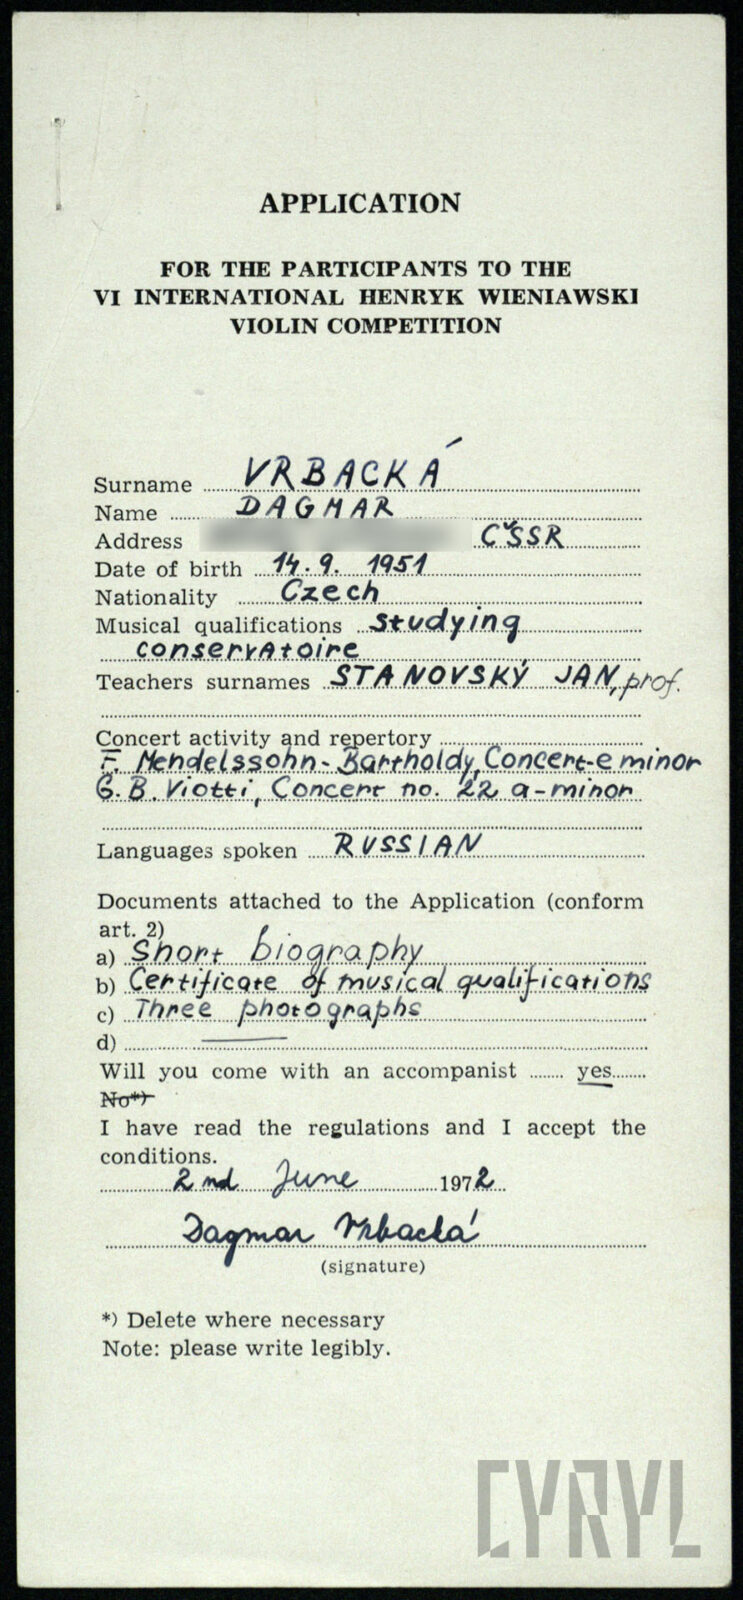 APPLICATION
FOR THE PARTICIPANTS TO THE
VI INTERNATIONAL HENRYK WIENIAWSKI
VIOLIN COMPETITION
Surname VRBACKÁ
Name DAGMAR
Address ČSSR
Date of birth 14. 9. 1951
Nationality Czech
Musical qualifications studying
conservatoire
Teachers surnames STANOVSKÝ JAN, prof.
Concert activity and repertory
F. Mendelssohn-Bartholdy, Concert-e minor
G. B. Viotti, Concert no. 22 a-minor
Languages spoken RUSSIAN
Documents attached to the Application (conform
art. 2)
a) Short biography
b) Certificate of musical qualifications
c) Three photographs
d) —
Will you come with an accompanist yes
No*)
I have read the regulations and I accept the
conditions.
2nd June 1972
Dagmar Vrbacká
(signature)
*) Delete where necessary
Note: please write legibly.
CYRYL